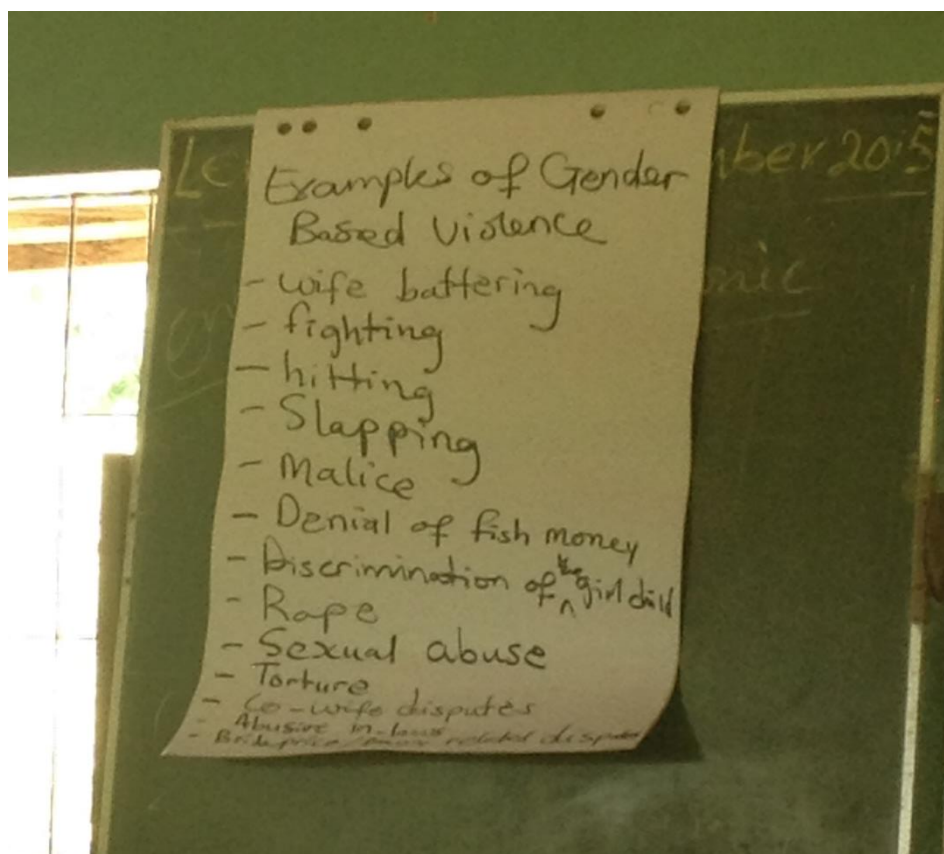 Examples of Gender
Based Violence
- wife battering
- fighting
- hitting
- Slapping
- Malice
- Denial of fish money
- Discrimination of the girl child
- Rape
- Sexual abuse
- Torture
- Co-wife disputes
- Abusive in-laws
- Brideprice related disputes
2015